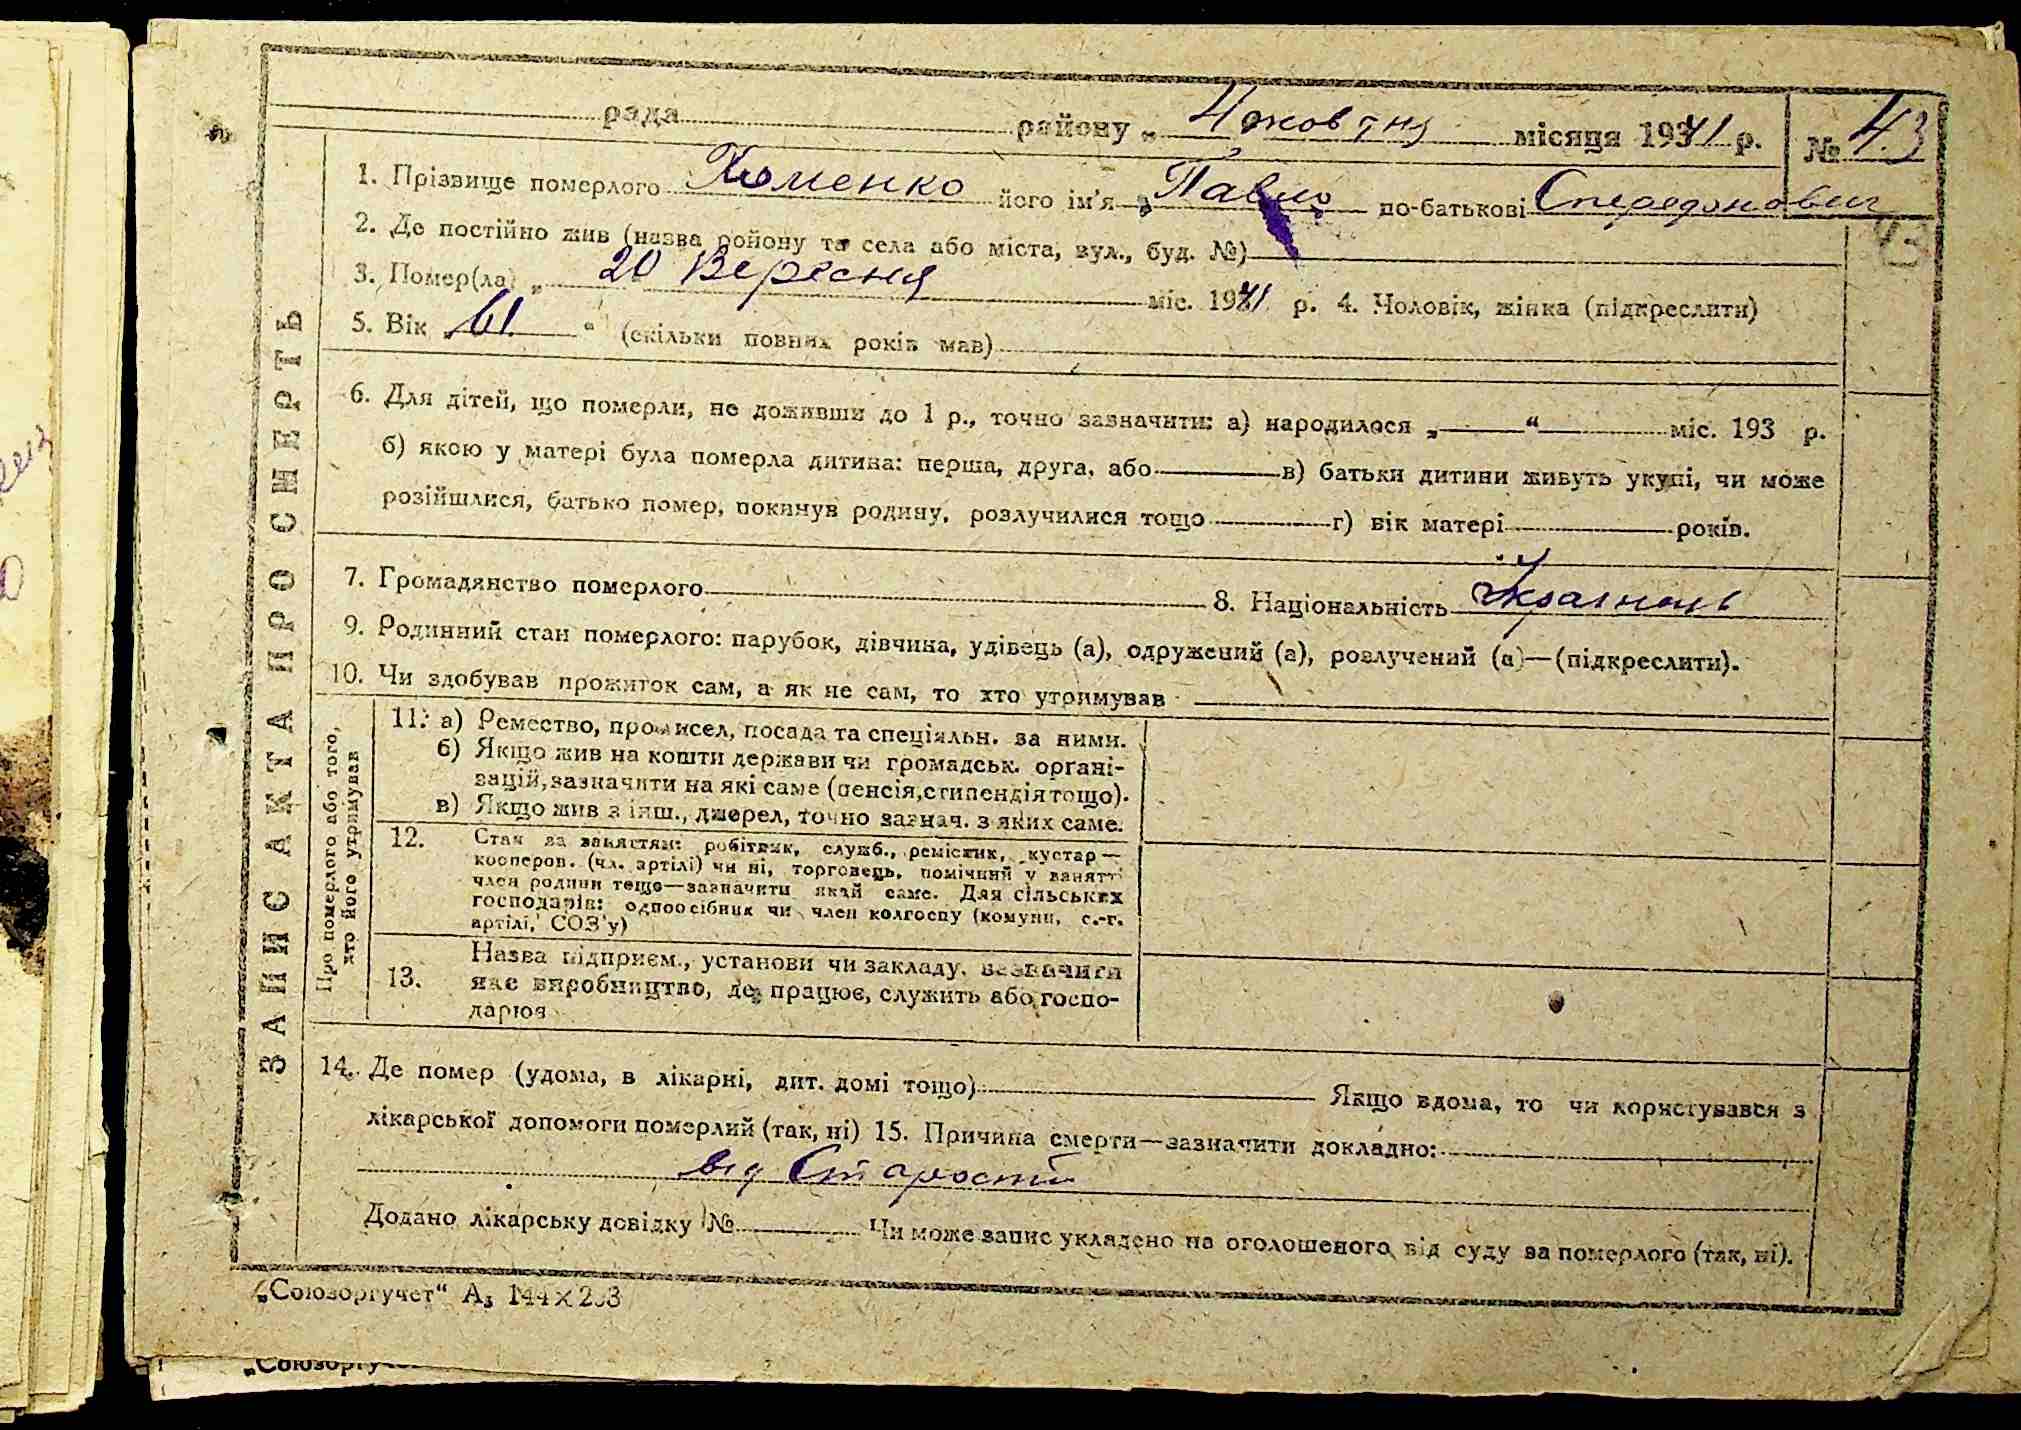 рада району „ 4 жовтня місяця 1941 р. № 43
1. Прізвище померлого Хоменко його ім'я „ Павло по-батькові Спередонович
43
2. Де постійно жив (назва району та села або міста, вул., буд. №)
3. Помер(ла) „ 20 Вересня міс. 1941 р. 4. Чоловік, жінка (підкреслити)
5. Вік „ 61 “ (скільки повних років мав)
6. Для дітей, що померли, не доживши до 1 р., точно зазначити: а) народилося „ “ міс. 193 р.
б) якою у матері була померла дитина: перша, друга, або в) батьки дитини живуть укупі, чи може
розійшлися, батько помер, покинув родину, розлучилися тощо г) вік матері років.
7. Громадянство померлого 8. Національність Українець
9. Родинний стан померлого: парубок, дівчина, удівець (а), одружений (а), розлучений (а)—(підкреслити).
10. Чи здобував прожиток сам, а як не сам, то хто утримував
ЗАПИС АКТА ПРО СМЕРТЬ
Про померлого або того,
хто його утримував
11. а) Ремество, промисел, посада та спеціяльн. за ними.
б) Якщо жив на кошти держави чи громадськ. органі-
зацій, зазначити на які саме (пенсія, стипендія тощо).
в) Якщо жив з інш., джерел, точно зазнач. з яких саме.
12. Стан за заняттям: робітник, службв., ремісник, кустар—
кооперов. (чл. артілі) чи ні, торговець, помічний у занятті
член родини тощо—зазначити який саме. Для сільських
господарів: одноосібник чи член колгоспу (комуни, с.-г.
артілі, СОЗ'у)
13. Назва підприєм., установи чи закладу, зазначити
яке виробництво, де працює, служить або госпо-
дарює
14. Де помер (удома, в лікарні, дит. домі тощо) Якщо вдома, то чи користувався з
лікарської допомоги померлий (так, ні) 15. Причина смерти—зазначити докладно:
від Старости
Додано лікарську довідку № Чи може запис укладено на оголошеного від суду за померлого (так, ні).
„Союзоргучет“ А₅ 144×203
„Союзоргучет